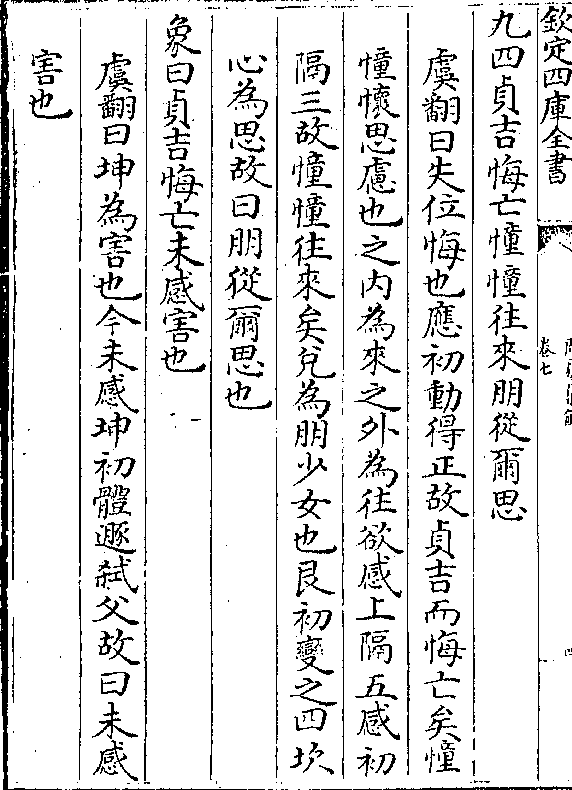 欽定四庫全書
卷七
九四貞吉悔亡憧憧往來朋從爾思
虞翻曰失位悔也應初動得正故貞吉而悔亡矣憧
憧懷思慮也之内為來之外為往欲感上隔五感初
隔三故憧憧往來矣兌為朋少女也艮初變之四坎
心為思故曰朋從爾思也
象曰貞吉悔亡未感害也
虞翻曰坤為害也今未感坤初體遯弑父故曰未感
害也